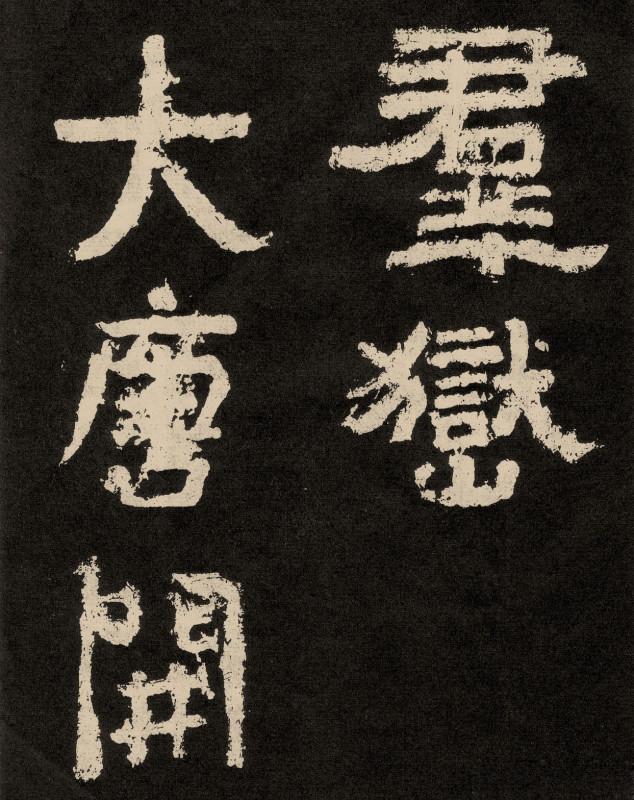 羣嶽
大唐開